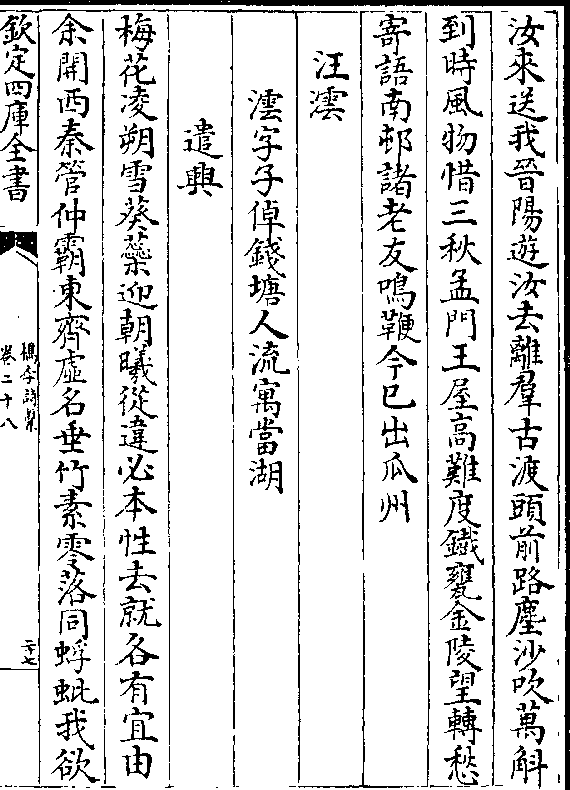 汝來送我晉陽遊汝去離羣古渡頭前路塵沙吹萬斛
到時風物惜三秋孟門王屋高難度鐵甕金陵望轉愁
寄語南邨諸老友鳴鞭今已出瓜州
汪澐
澐字子倬錢塘人流寓當湖
遣興
梅花凌朔雪葵蘂迎朝曦從違必本性去就各有宜由
余開西秦管仲霸東齊虛名垂竹素零落同蜉蚍我欲
欽定四庫全書
檇李詩繫
卷二十八
二十七